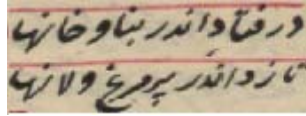 در فتاد اندر بنا و خانها
تا زد اندر پر مرغ و لانها